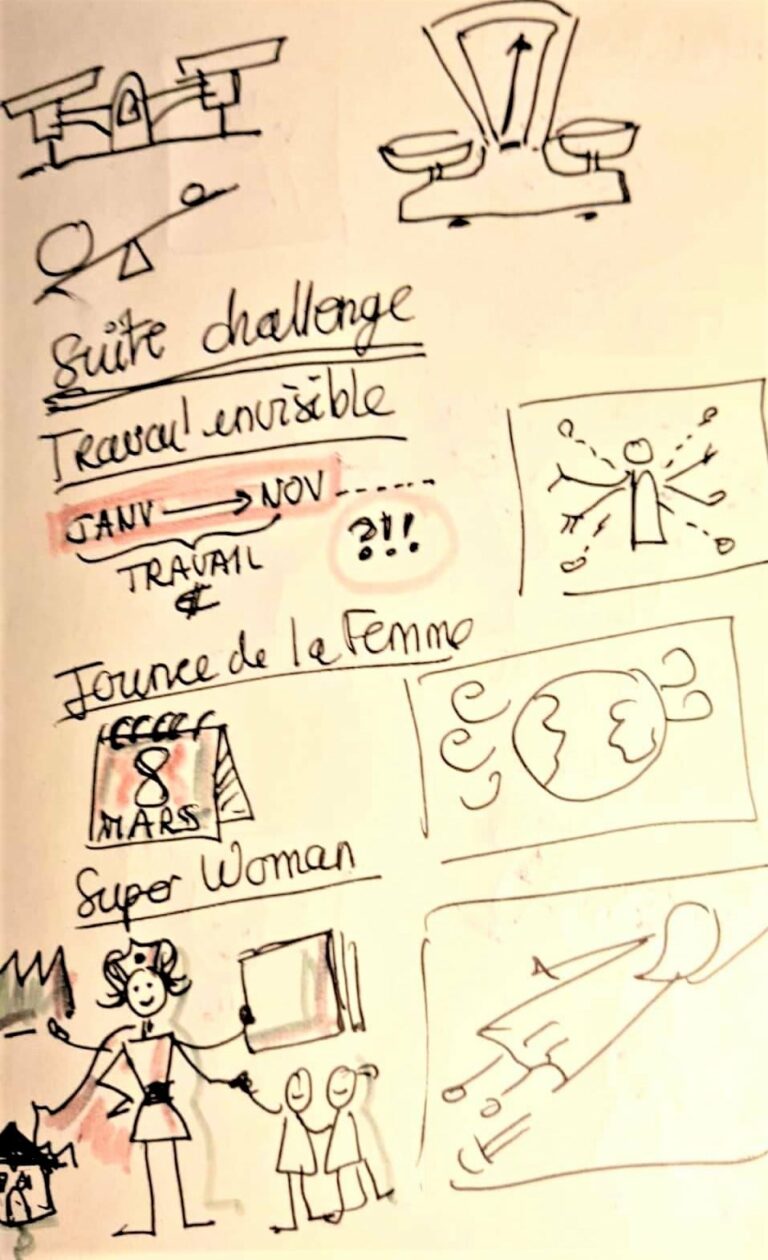 Suite challenge
Travail invisible
JANV → NOV ------
?!!
TRAVAIL
¢
Journee de la Femme
8
MARS
Super Woman